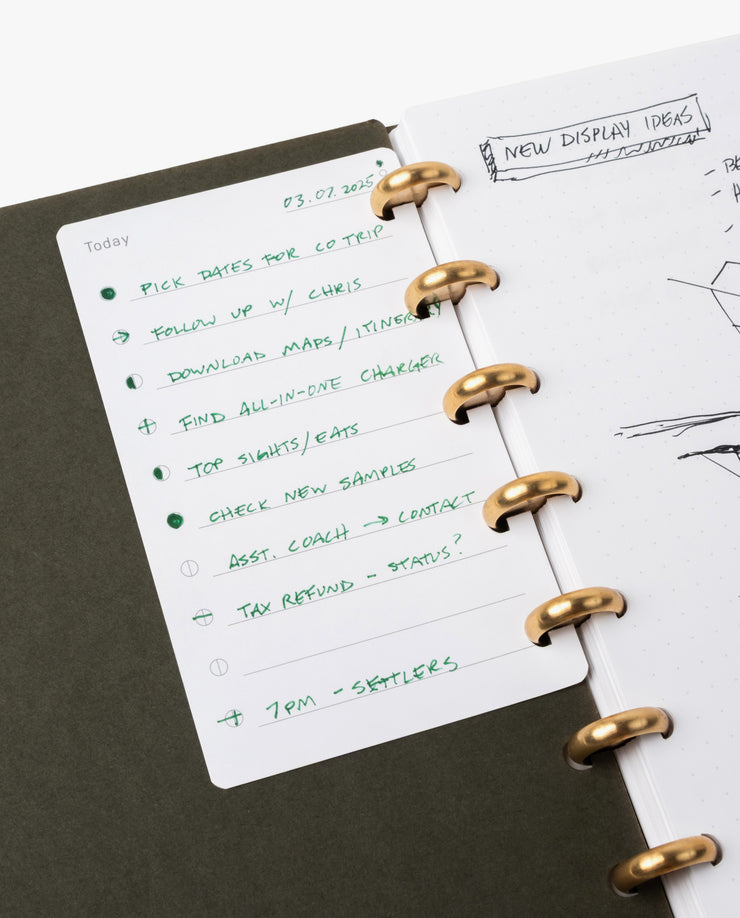 03.07.2025
Today
PICK DATES FOR CO TRIP
FOLLOW UP W/ CHRIS
DOWNLOAD MAPS/ITINERARY
FIND ALL-IN-ONE CHARGER
TOP SIGHTS/EATS
CHECK NEW SAMPLES
ASST. COACH → CONTACT
TAX REFUND - STATUS?
7PM - SETTLERS
NEW DISPLAY IDEAS